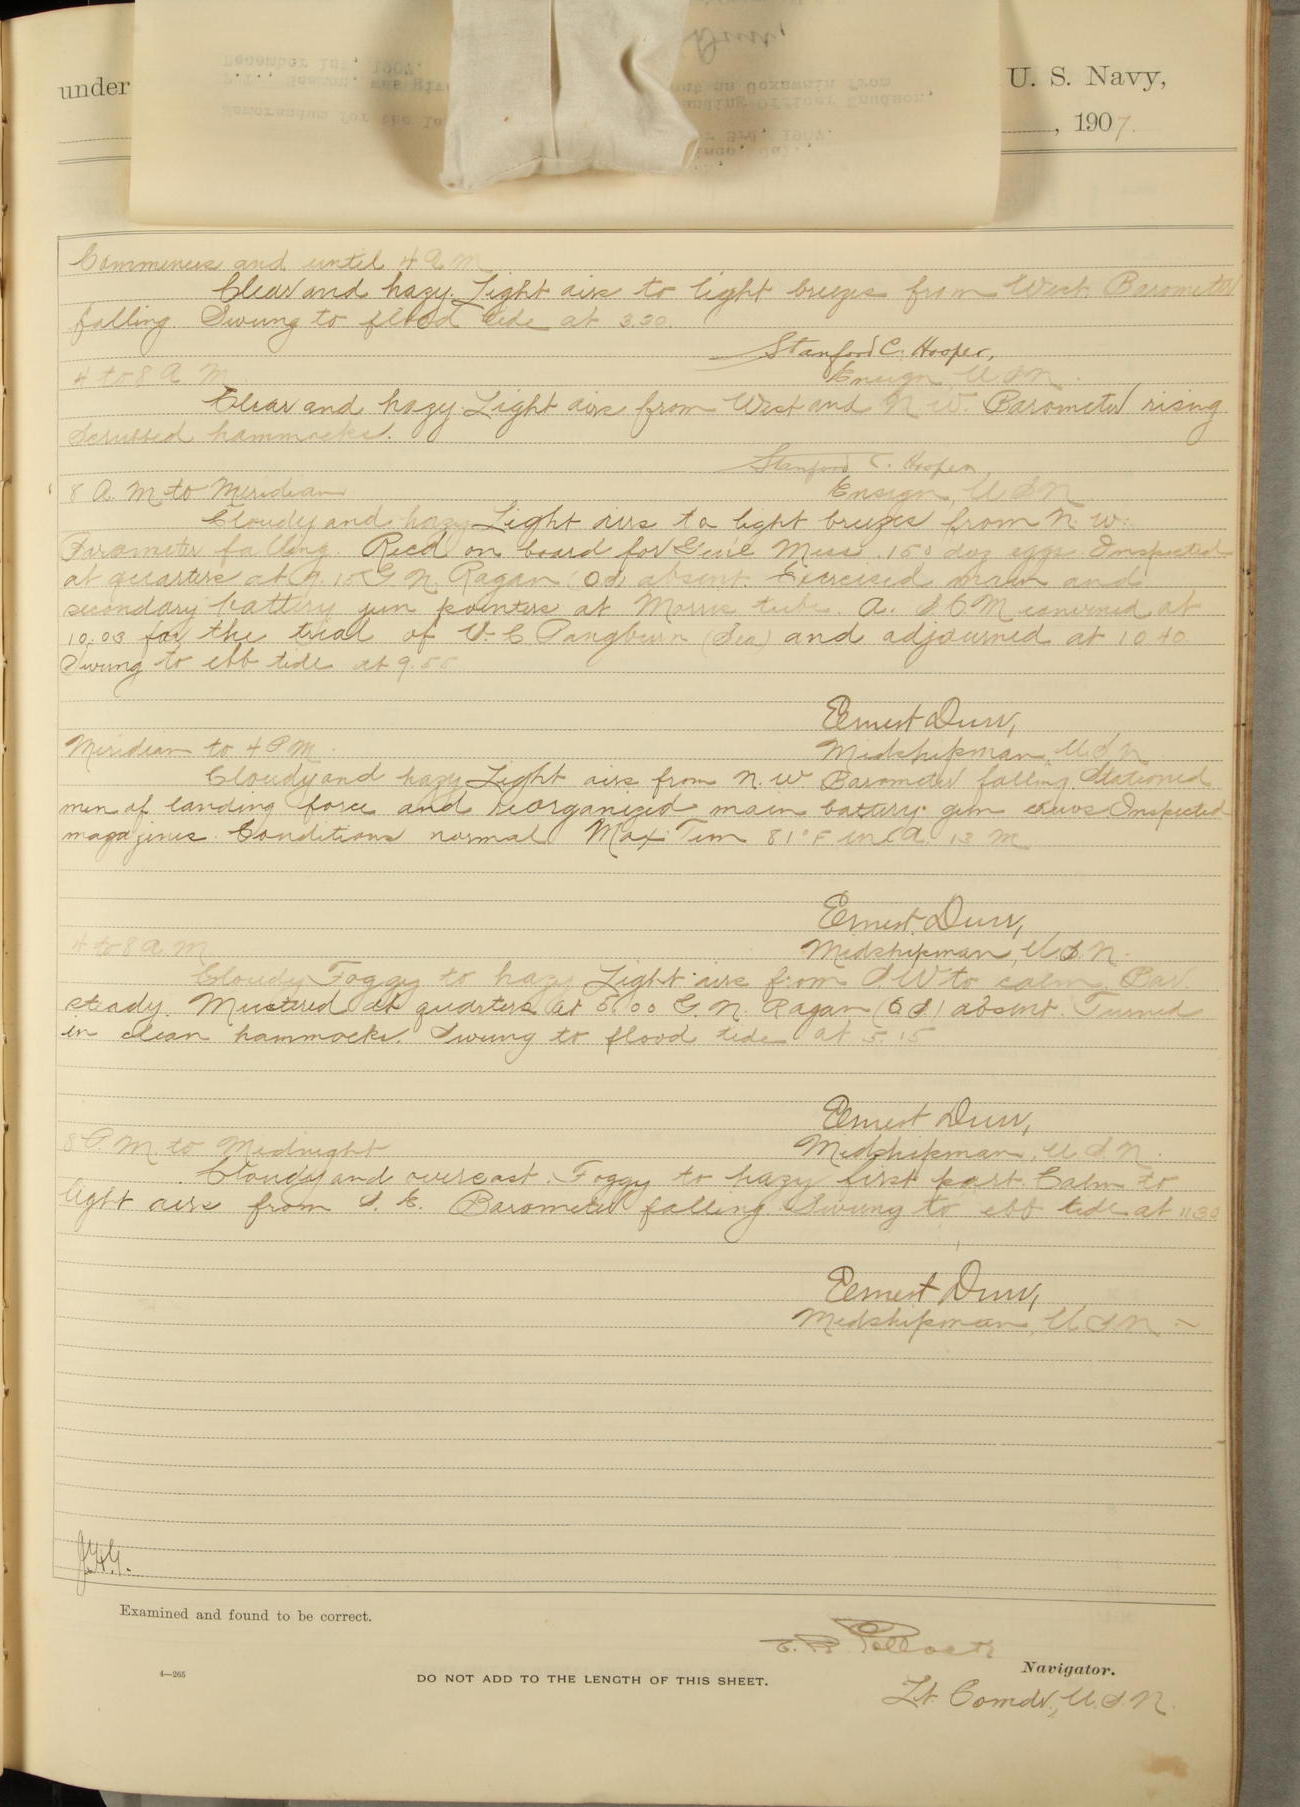 under
U. S. Navy,
, 1907.
Commences and until 4 A M
Clear and hazy. Light airs to light breezes from West. Barometer
falling. Swung to flood tide at 3.30.
Stanford C. Hooper,
Ensign, U S N.
4 to 8 A M
Clear and hazy. Light airs from West and N. W. Barometer rising
Scrubbed hammocks.
Stanford C. Hooper,
Ensign, U S N
8 A. M to Meridian
Cloudy and hazy Light airs to light breezes from N. W.
Barometer falling. Recd on board for Gen'l Mess. 150 doz eggs. Inspected
at quarters at 9.15 G N. Ragan absent. Exercised main and
secondary battery gun pointers at Morris tube. A. S C M convened at
10.03 for the trial of V. C. Pangburn (Sea) and adjourned at 10.40
Swung to ebb tide at 9.55
Ernest Durr,
Midshipman U S N
Meridian to 4 P M.
Cloudy and hazy Light airs from N. W. Barometer falling. Stationed
men of landing force and reorganized main battery gun crews Inspected
magazines. Conditions normal Max. Tem 81° F in A. 13 M
Ernest Durr,
Midshipman, U. S. N.
4 to 8 A. M
Cloudy Foggy to hazy Light airs from S W to calm. Bar.
steady. Mustered at quarters at 5.00 G. N. Ragan absent. Turned
in clean hammocks. Swung to flood tide at 5.15
Ernest Durr,
Midshipman, U S N.
8 P. M to Midnight
Cloudy and overcast. Foggy to hazy first part. Calm to
light airs from S. E. Barometer falling. Swung to ebb tide at 11.30
Ernest Durr,
Midshipman, U. S. N
Examined and found to be correct.
Navigator.
4—265
DO NOT ADD TO THE LENGTH OF THIS SHEET.
Lt. Comdr., U. S. N.